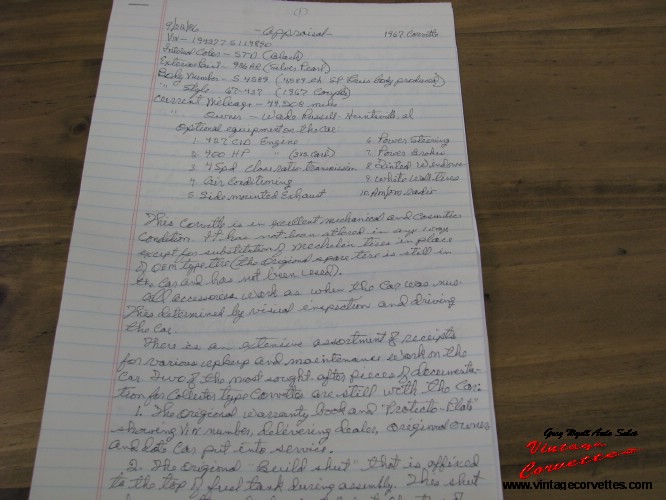 (1)
9/26/86 - Appraisal - 1967 Corvette
Vin - 194377S119890
Interior Color - STD (Black)
Exterior Paint - 986AA (Silver Pearl)
Body Number - S-4089 (4089 th St Louis body produced)
" Style - 67-437 (1967 Coupe)
Current Mileage - miles
" Owner - Wade Russell - Huntsville, al
Optional equipment on the car
1. 427 CID Engine
2. 400 HP " (3x2 Carb)
3. 4 Spd close ratio transmission
4. Air Conditioning
5. Side mounted Exhaust
6. Power Steering
7. Power Brakes
8. Tinted Windows
9. White Wall tires
10. Am/Fm Radio
This Corvette is in excellent mechanical and cosmetic
condition. It has not been altered in any way
except for substitution of Mechelin tires in place
of OEM type tire (the original spare tire is still in
the car and has not been used).
All accessories work as when the car was new.
This determined by visual inspection and driving
the car.
There is an extensive assortment of receipts
for various upkeep and maintenance work on the
car. Two of the most sought after pieces of documenta-
tion for Collector type Corvettes are still with the car.
1. The original warranty book and "Protecto-Plate"
showing Vin number, delivering dealer, original owner
and date car put into service.
2. The original "Build sheet" that is affixed
to the top of fuel tank during assembly. This sheet
Greg Wyatt Auto Sales
Vintage
Corvettes
www.vintagecorvettes.com